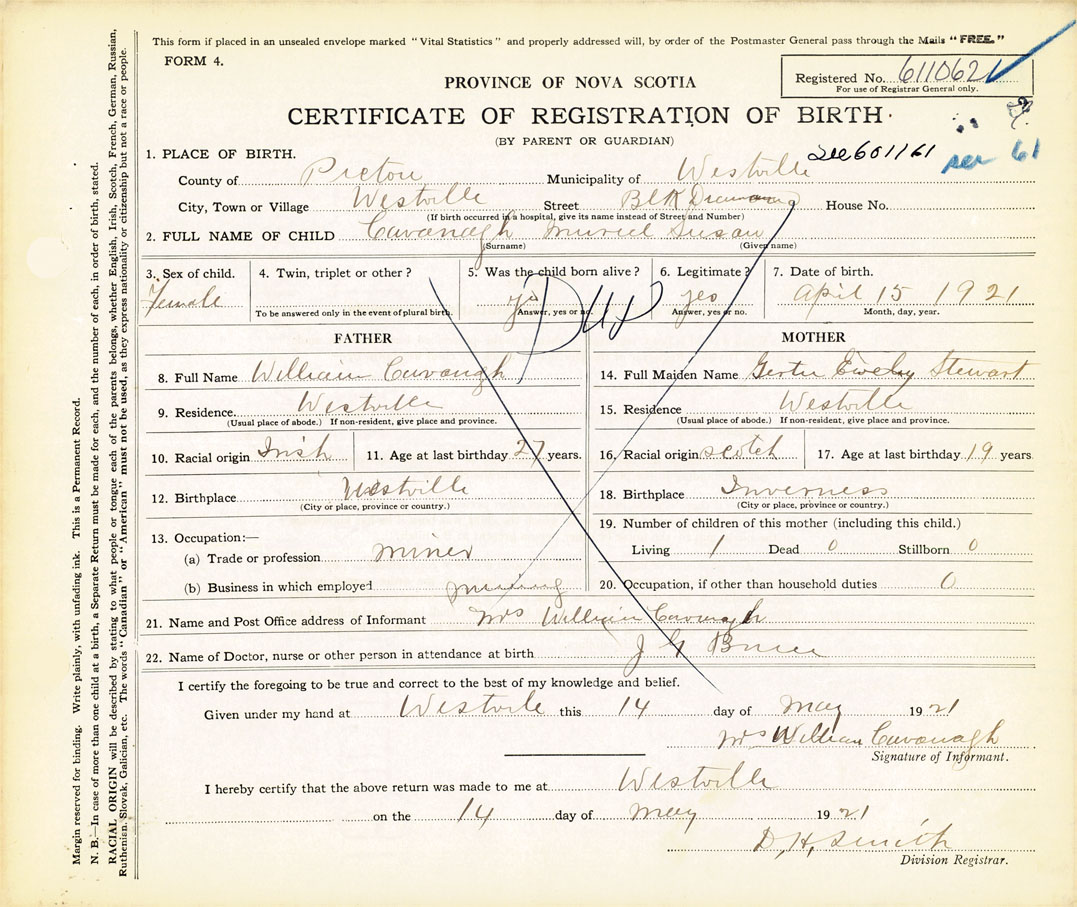 This form if placed in an unsealed envelope marked "Vital Statistics" and properly addressed will, by order of the Postmaster General pass through the Mails "FREE."
FORM 4.
Registered No. 611062
For use of Registrar General only.
PROVINCE OF NOVA SCOTIA
CERTIFICATE OF REGISTRATION OF BIRTH
(BY PARENT OR GUARDIAN)
See 601161
61
1. PLACE OF BIRTH.
County of Pictou Municipality of Westville
City, Town or Village Westville Street Blk House No.
(If birth occurred in a hospital, give its name instead of Street and Number)
2. FULL NAME OF CHILD Cavanagh Muriel Susan
(Surname) (Given name)
3. Sex of child. Female
4. Twin, triplet or other?
To be answered only in the event of plural birth.
5. Was the child born alive? yes
Answer, yes or no.
6. Legitimate? yes
Answer, yes or no.
7. Date of birth. April 15 1921
Month, day, year.
DUP
FATHER
8. Full Name William Cavanagh
9. Residence. Westville
(Usual place of abode.) If non-resident, give place and province.
10. Racial origin Irish 11. Age at last birthday 27 years.
12. Birthplace Westville
(City or place, province or country.)
13. Occupation:—
(a) Trade or profession miner
(b) Business in which employed mining
MOTHER
14. Full Maiden Name Gertie Stewart
15. Residence Westville
(Usual place of abode.) If non-resident, give place and province.
16. Racial origin scotch 17. Age at last birthday 19 years
18. Birthplace Inverness
(City or place, province or country.)
19. Number of children of this mother (including this child.)
Living 1 Dead 0 Stillborn 0
20. Occupation, if other than household duties 0
21. Name and Post Office address of Informant Mrs William Cavanagh
22. Name of Doctor, nurse or other person in attendance at birth J G
I certify the foregoing to be true and correct to the best of my knowledge and belief.
Given under my hand at Westvile this 14 day of May 1921
Mrs William Cavanagh
Signature of Informant.
I hereby certify that the above return was made to me at Westville
on the 14 day of May 1921
D. H. Smith
Division Registrar.
Margin reserved for binding. Write plainly, with unfading ink. This is a Permanent Record.
N. B.—In case of more than one child at a birth, a Separate Return must be made for each, and the number of each, in order of birth, stated.
RACIAL ORIGIN will be described by stating to what people or tongue each of the parents belongs, whether English, Irish, Scotch, French, German, Russian,
Ruthenian, Slovak, Galician, etc. The words "Canadian" or "American" must not be used, as they express nationality or citizenship but not a race or people.